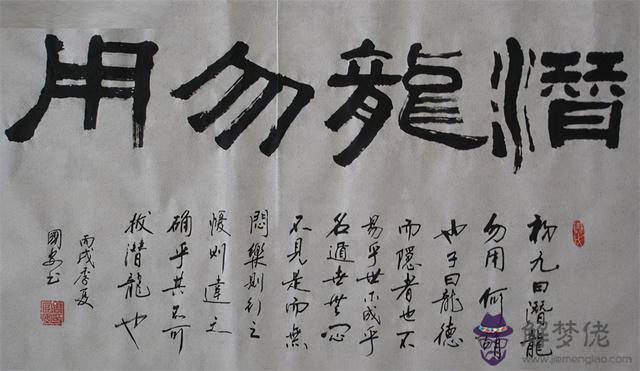 潛龍勿用
初九曰潛龍
勿用何
也子曰龍德
而隱者也不
易乎世不成乎
名遁世無悶
不見是而無
悶樂則行之
憂則違之
确乎其不可
拔潛龍也
丙戌季夏
國安书
解梦佬
www.jiemenglao.com